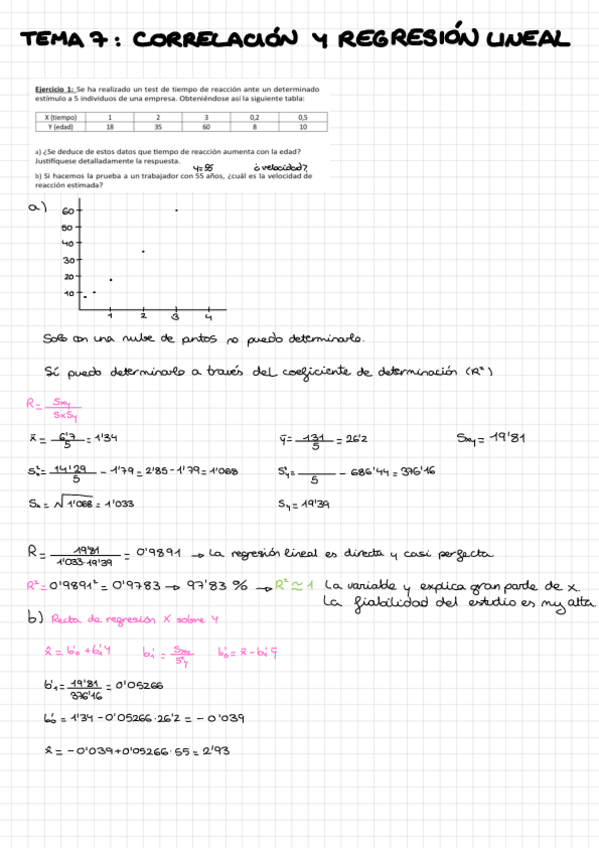 TEMA 7: CORRELACIÓN Y REGRESIÓN LINEAL
Ejercicio 1: Se ha realizado un test de tiempo de reacción ante un determinado
estímulo a 5 individuos de una empresa. Obteniéndose así la siguiente tabla:
X (tiempo) 1 2 3 0,2 0,5
Y (edad) 18 35 60 8 10
a) ¿Se deduce de estos datos que tiempo de reacción aumenta con la edad?
Justifíquese detalladamente la respuesta.
y=55 ¿velocidad?
b) Si hacemos la prueba a un trabajador con 55 años, ¿cuál es la velocidad de
reacción estimada?
a)
60
50
40
30
20
10
1 2 3 4
Solo con una nube de puntos no puedo determinarlo.
Sí puedo determinarlo a través del coeficiente de determinación (R²)
R = Sxy / SxSy
x̄ = 6'7 / 5 = 1'34 ȳ = 131 / 5 = 26'2 Sxy = 19'81
S²x = 14'29 / 5 - 1'79 = 2'85 - 1'79 = 1'068 S²y = / 5 - 686'44 = 376'16
Sx = √1'068 = 1'033 Sy = 19'39
R = 19'81 / 1'033·19'39 = 0'9891 → La regresión lineal es directa y casi perfecta
R² = 0'9891² = 0'9783 → 97'83 % → R² ≃ 1 La variable y explica gran parte de x.
La fiabilidad del estudio es muy alta.
b) Recta de regresión X sobre Y
x̂ = b'₀ + b'₁Y b'₁ = Sxy / S²y b'₀ = x̄ - b'₁ȳ
b'₁ = 19'81 / 376'16 = 0'05266
b'₀ = 1'34 - 0'05266·26'2 = -0'039
x̂ = -0'039 + 0'05266·55 = 2'93